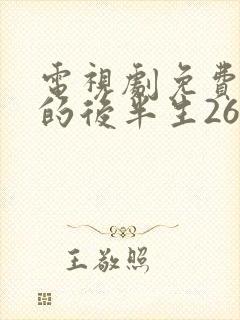 電視劇免費
的後半生26
王敬照